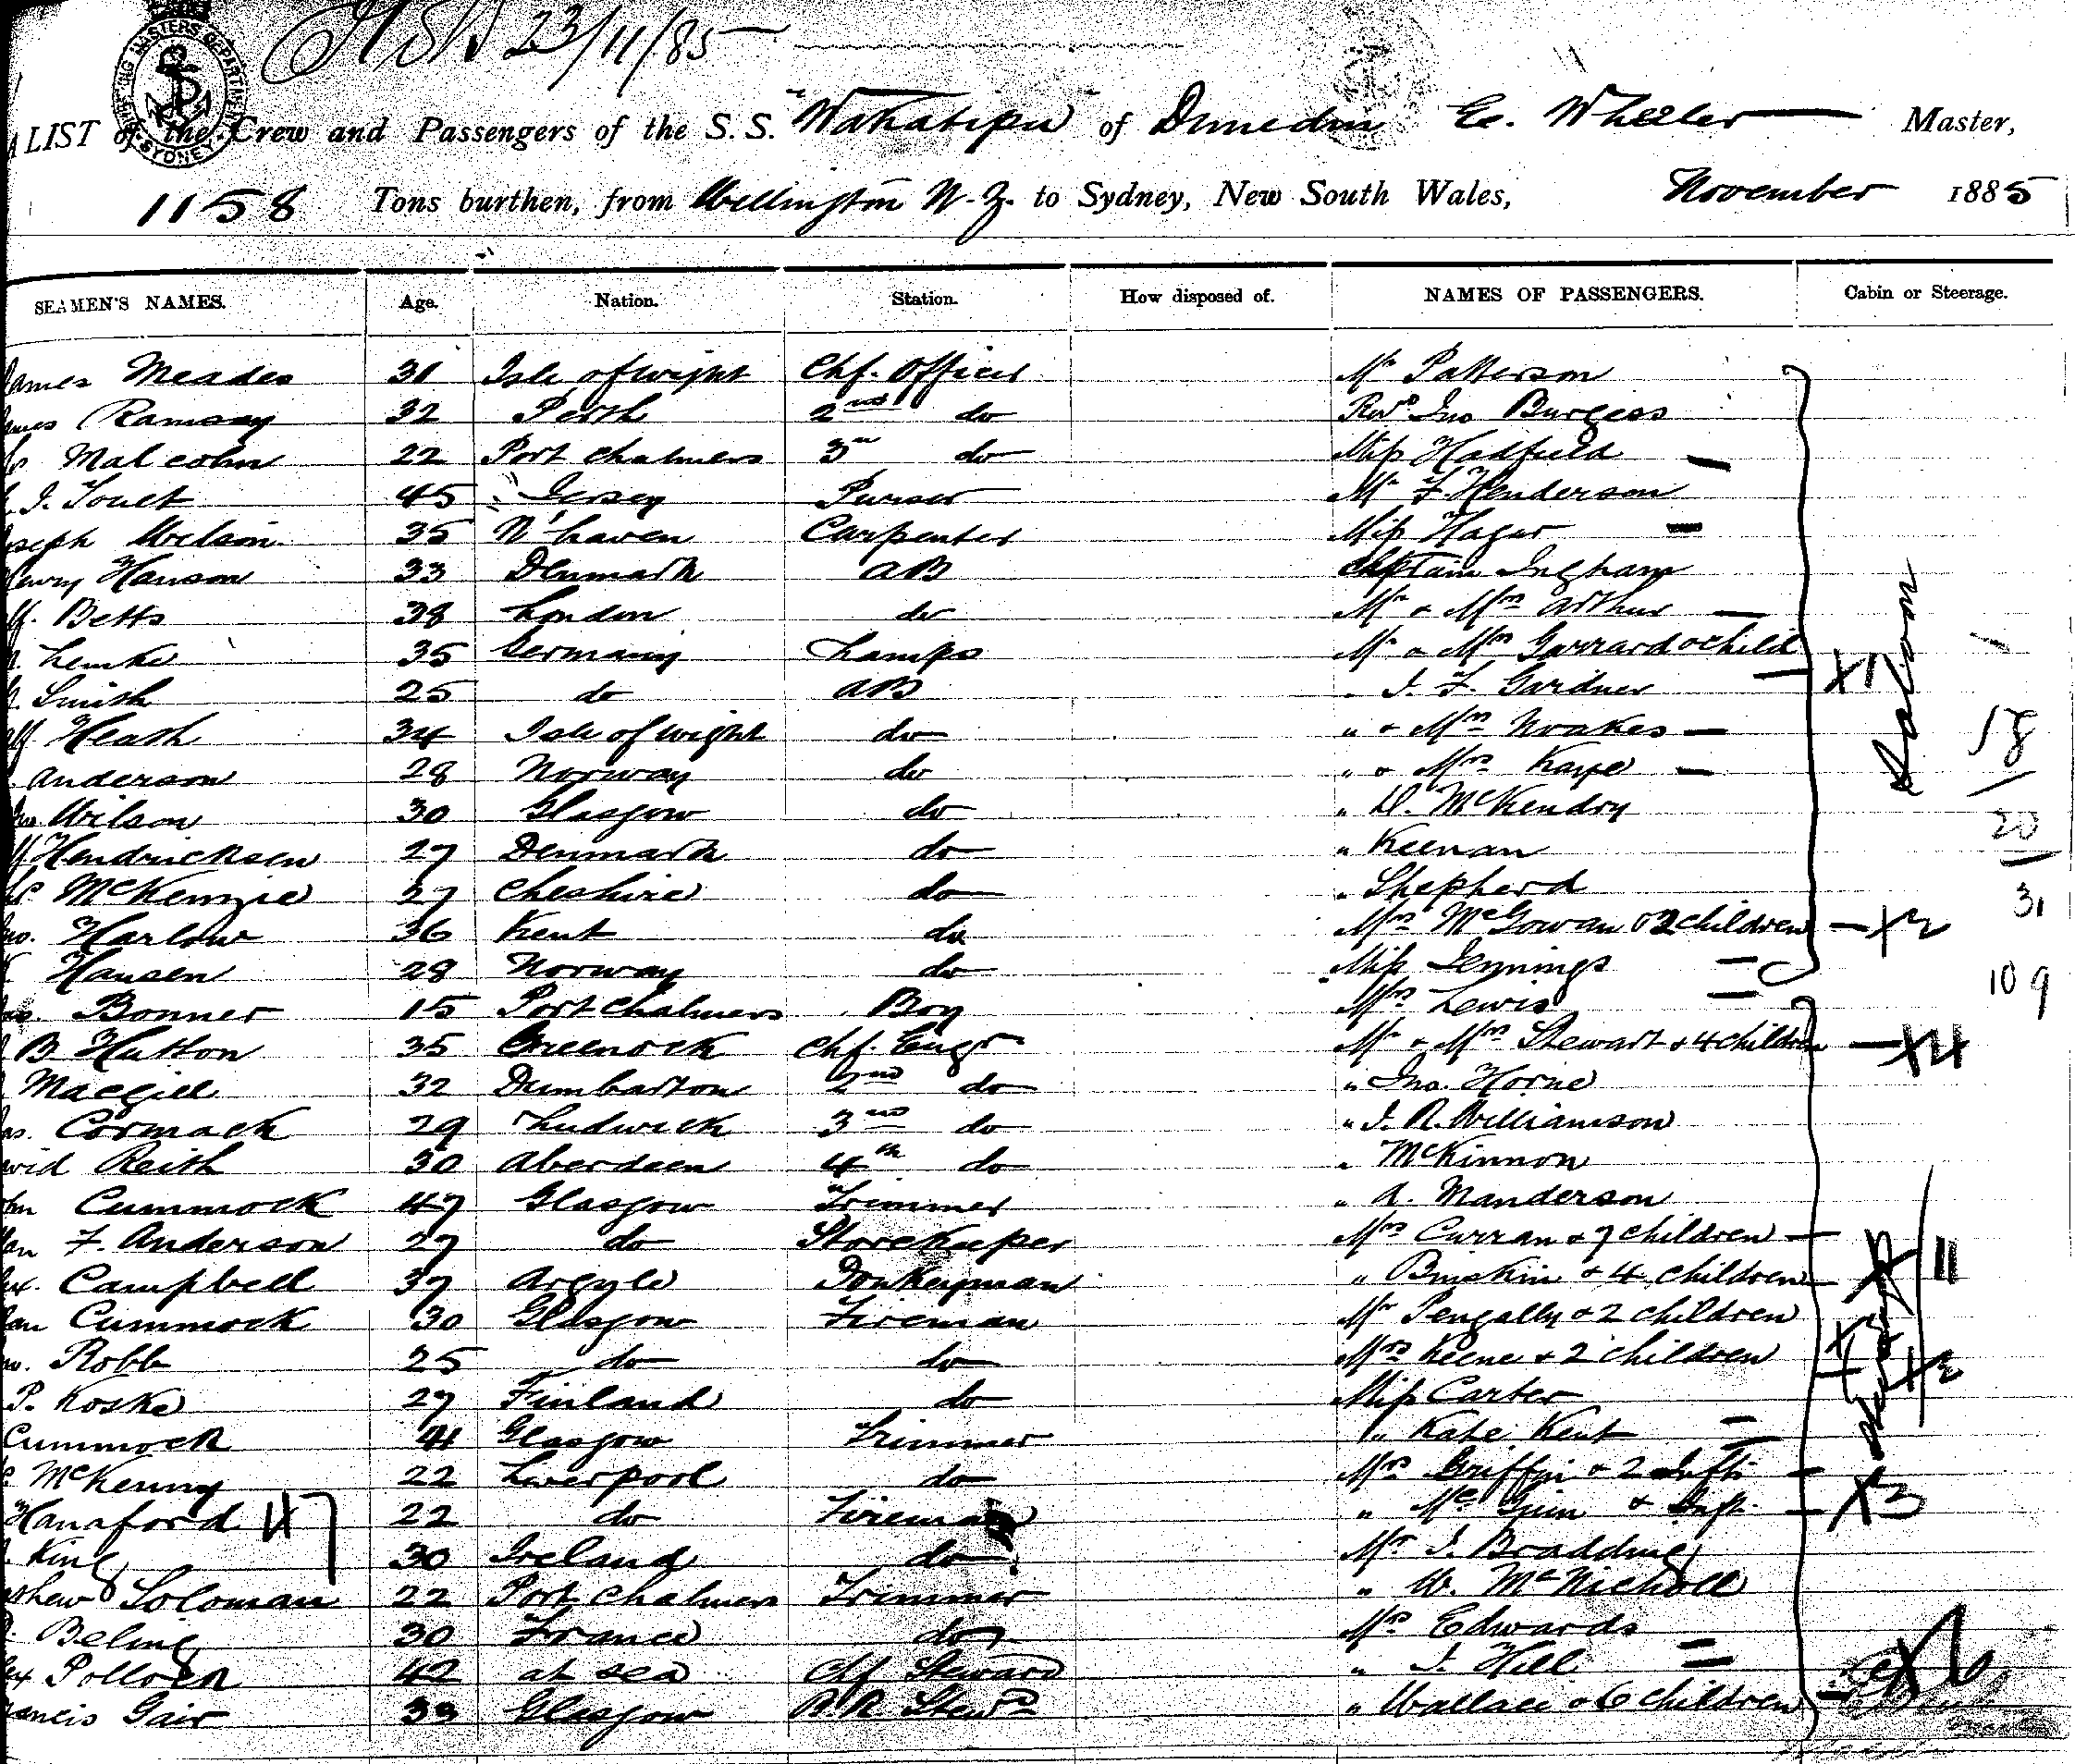 23/11/85
SHIPPING MASTERS DEPARTMENT SYDNEY
A LIST of the Crew and Passengers of the S.S. "Wakatipu" of Dunedin E. Wheeler Master,
1158 Tons burthen, from Wellington N.Z. to Sydney, New South Wales, November 1885
SEAMEN'S NAMES. Age. Nation. Station. How disposed of. NAMES OF PASSENGERS. Cabin or Steerage.
James Meades 31 Isle of wight Chf. Officer Mr Patterson
Ramsay 32 Perth 2nd do Revd Jno Burgess
Malcolm 22 Port Chalmers 3rd do Miss Hadfield
J. Touet 45 Jersey Purser Mr F. Henderson
Joseph Wilson 35 N'haven Carpenter Miss Hagar
Henry Hanson 33 Denmark AB Captain Ingham
Betts 38 London do Mr & Mrs Arthur
Lemke 35 Germany Lamps Mr & Mrs Garrard & child
Smith 25 do AB " J. F. Gardner X1
Heash 34 Isle of wight do " & Mrs Noakes Saloon 18
Anderson 28 Norway do " & Mrs Kaye
Wilson 30 Glasgow do " D. McKendry 20
Hendricksen 27 Denmark do " Keenan
McKenzie 27 Cheshire do " Shepherd 31
Harlow 36 Kent do Mrs McGowan & 2 children X2
Hansen 28 Norway do Miss Jennings 109
Bonner 15 Port Chalmers Boy Mrs Lewis
B Hutton 35 Greenock Chf. Engr Mr & Mrs Stewart & 4 children X4
Macgill 32 Dumbarton 2nd do " Jno. Horne
Cormack 29 3rd do " J. R. Williamson
David Reith 30 Aberdeen 4th do " McKinnon
Cummock 47 Glasgow Trimmer " A. Manderson
F. Anderson 27 do Storekeeper Mrs Curran & 7 children
Campbell 37 Argyle Donkeyman " & 4 children 11
Cummock 30 Glasgow Fireman Mr Pengally & 2 children
Robb 25 do do Mrs Keene & 2 children Steerage
P. Koske 27 Finland do Miss Carter
Cummock 41 Glasgow Trimmer " Kate Kent
McKenny 22 Liverpool do Mrs Griffin & 2 Infts
Hanaford 22 do Fireman " McGinn & Inft. X3
King 30 Ireland do Mr J. Bradding
Soloman 22 Port Chalmers Trimmer " W. McNicholl
Beling 30 France do Mrs Edwards
Pollock 42 at sea Chf Steward " J. Hill
Francis Gair 33 Glasgow Stewd " Wallace & 6 children X6